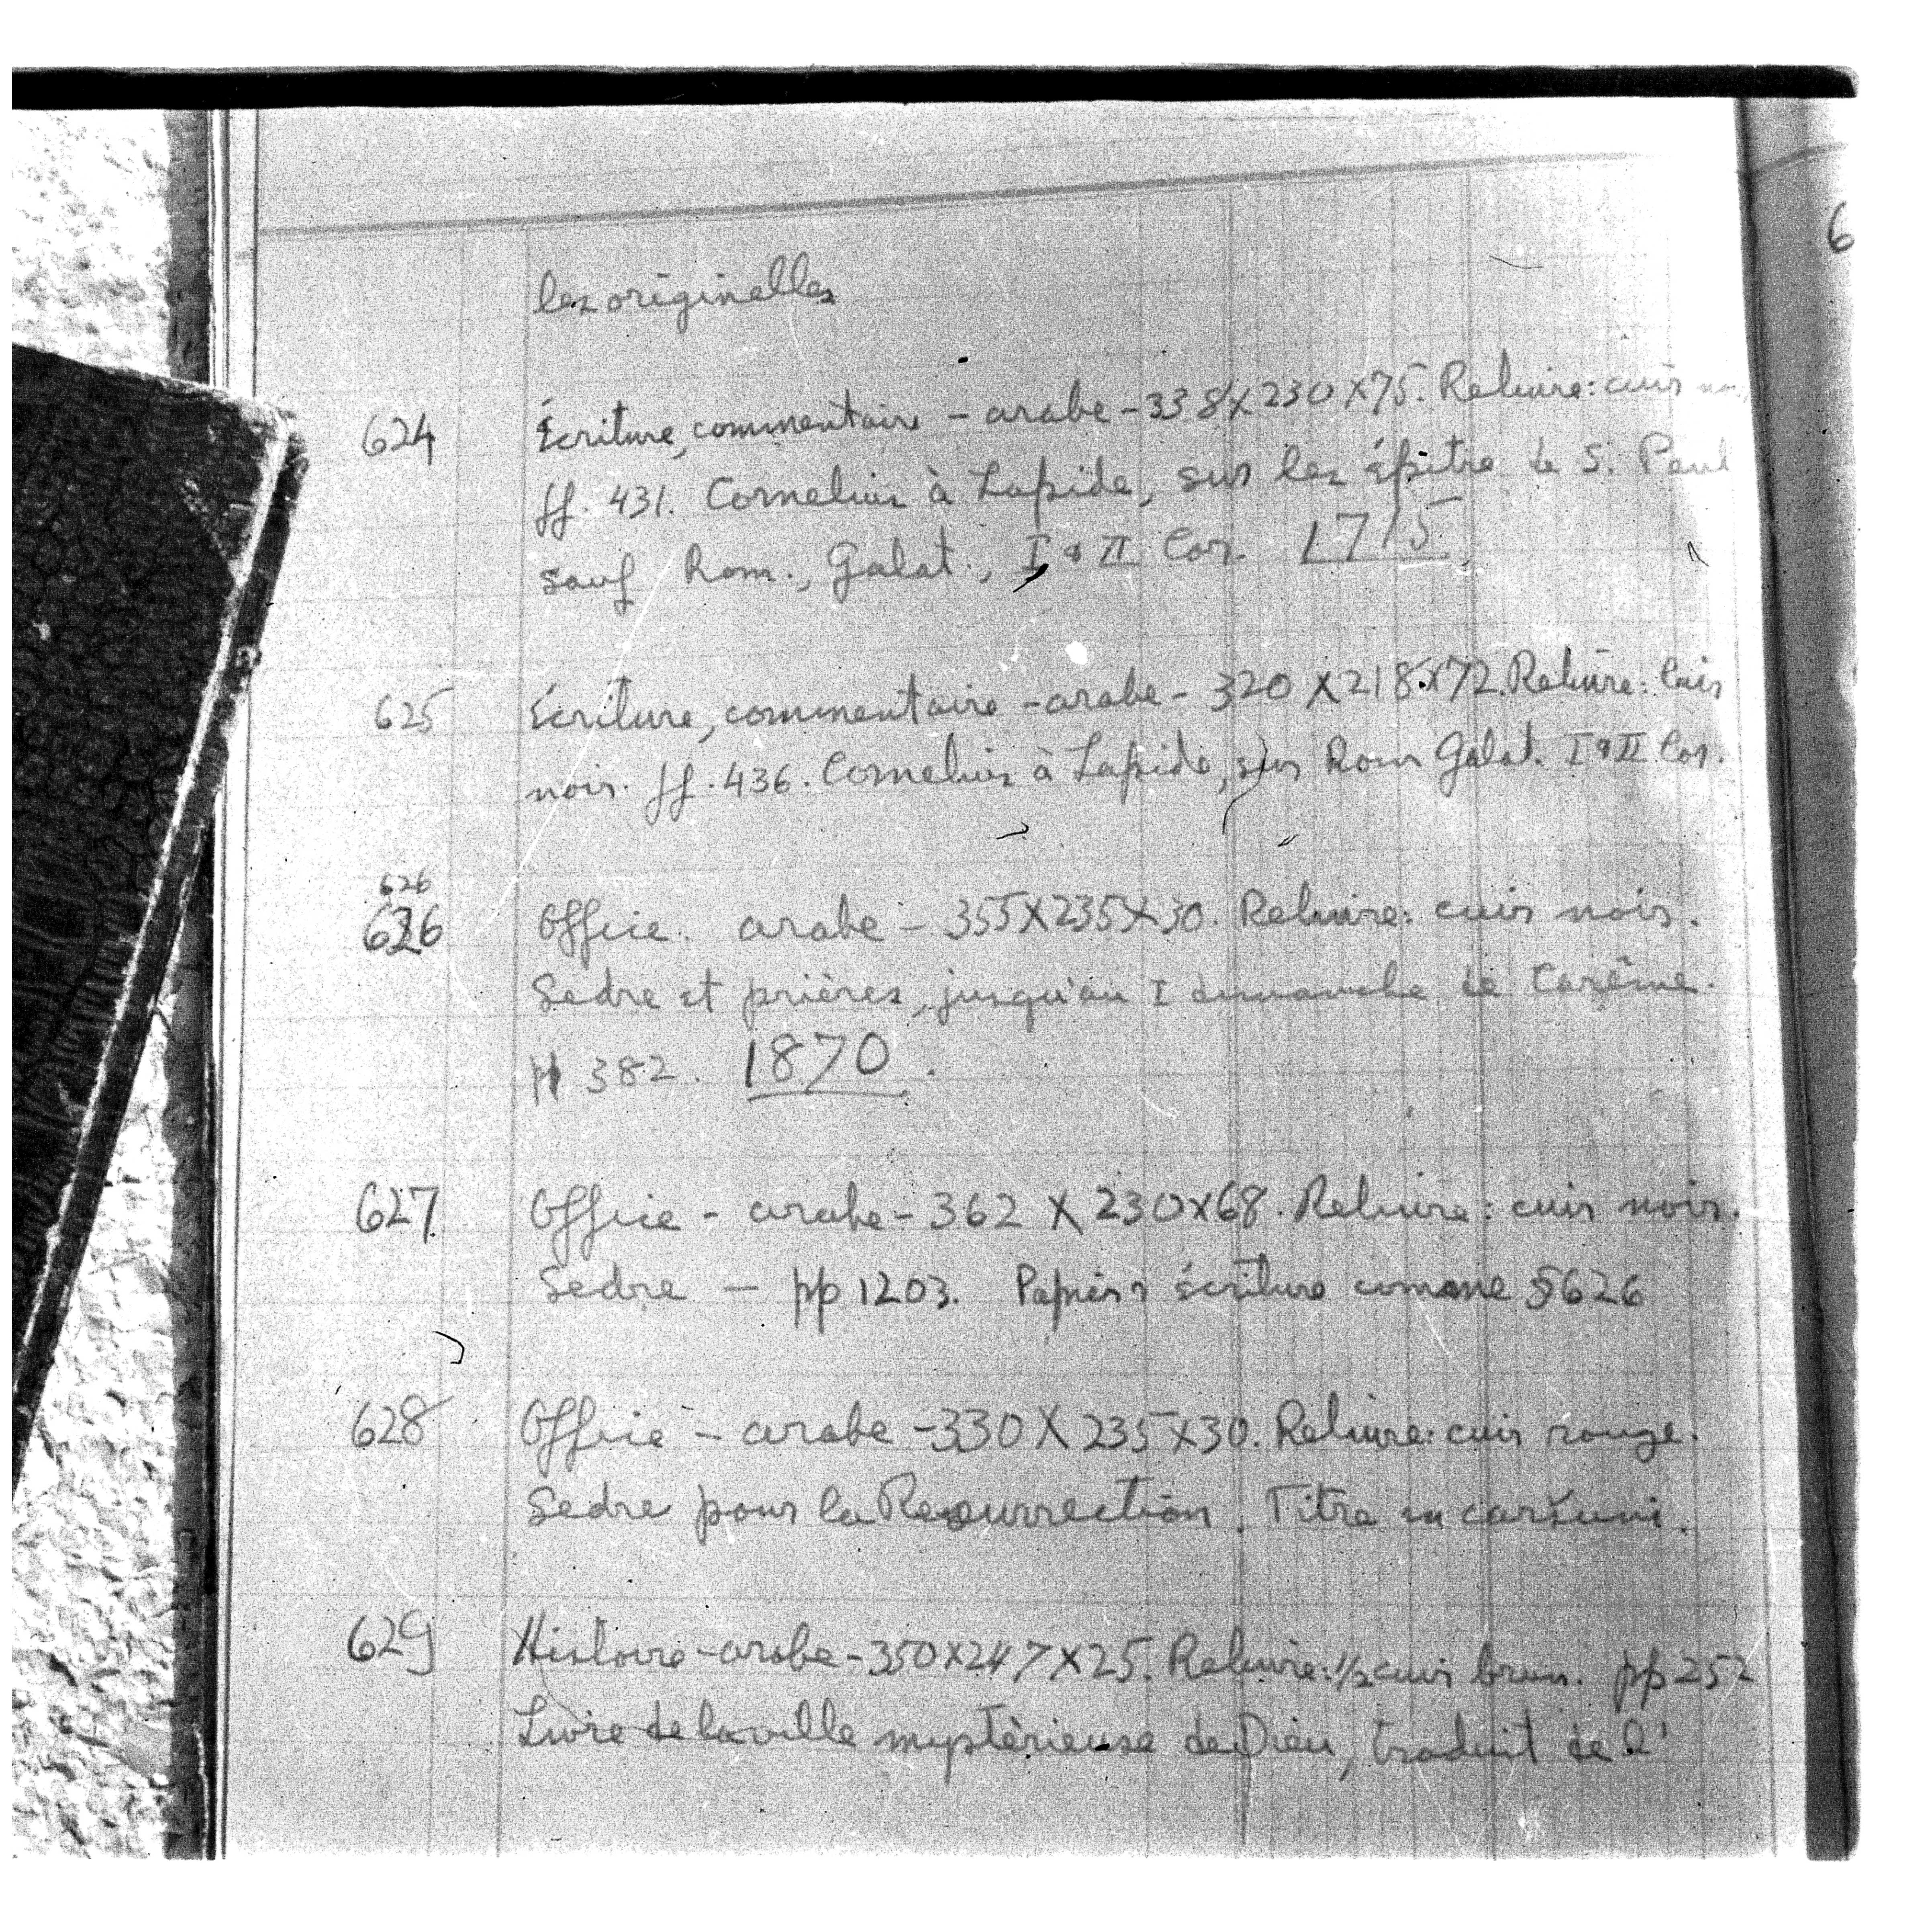 les originelles
624 Écriture, commentaire - arabe - 338 X 230 X 75. Reliure: cuir
ff. 431. Cornelius à Lapide, sur les épitre de S. Paul
sauf Rom., Galat., I & II Cor. 1715
625 Écriture, commentaire - arabe - 320 X 218 X 72. Reliure: cuir
noir. ff. 436. Cornelius à Lapide, sur Rom Galat. I & II Cor.
626
626 Office. arabe - 355 X 235 X 30. Reliure: cuir noir.
Sedre et prières, jusqu'au I dimanche de Carême.
pp 382. 1870.
627 Office - arabe - 362 X 230 X 68. Reliure: cuir noir.
Sedre - pp 1203. Papier & écriture comme § 626
628 Office - arabe - 330 X 235 X 30. Reliure: cuir rouge.
Sedre pour la Resurrection. Titre en carsuni.
629 Histoire - arabe - 350 X 247 X 25. Reliure: 1/2 cuir brun. pp 252
Livre de la ville mystérieuse de Dieu, traduit de l'
6